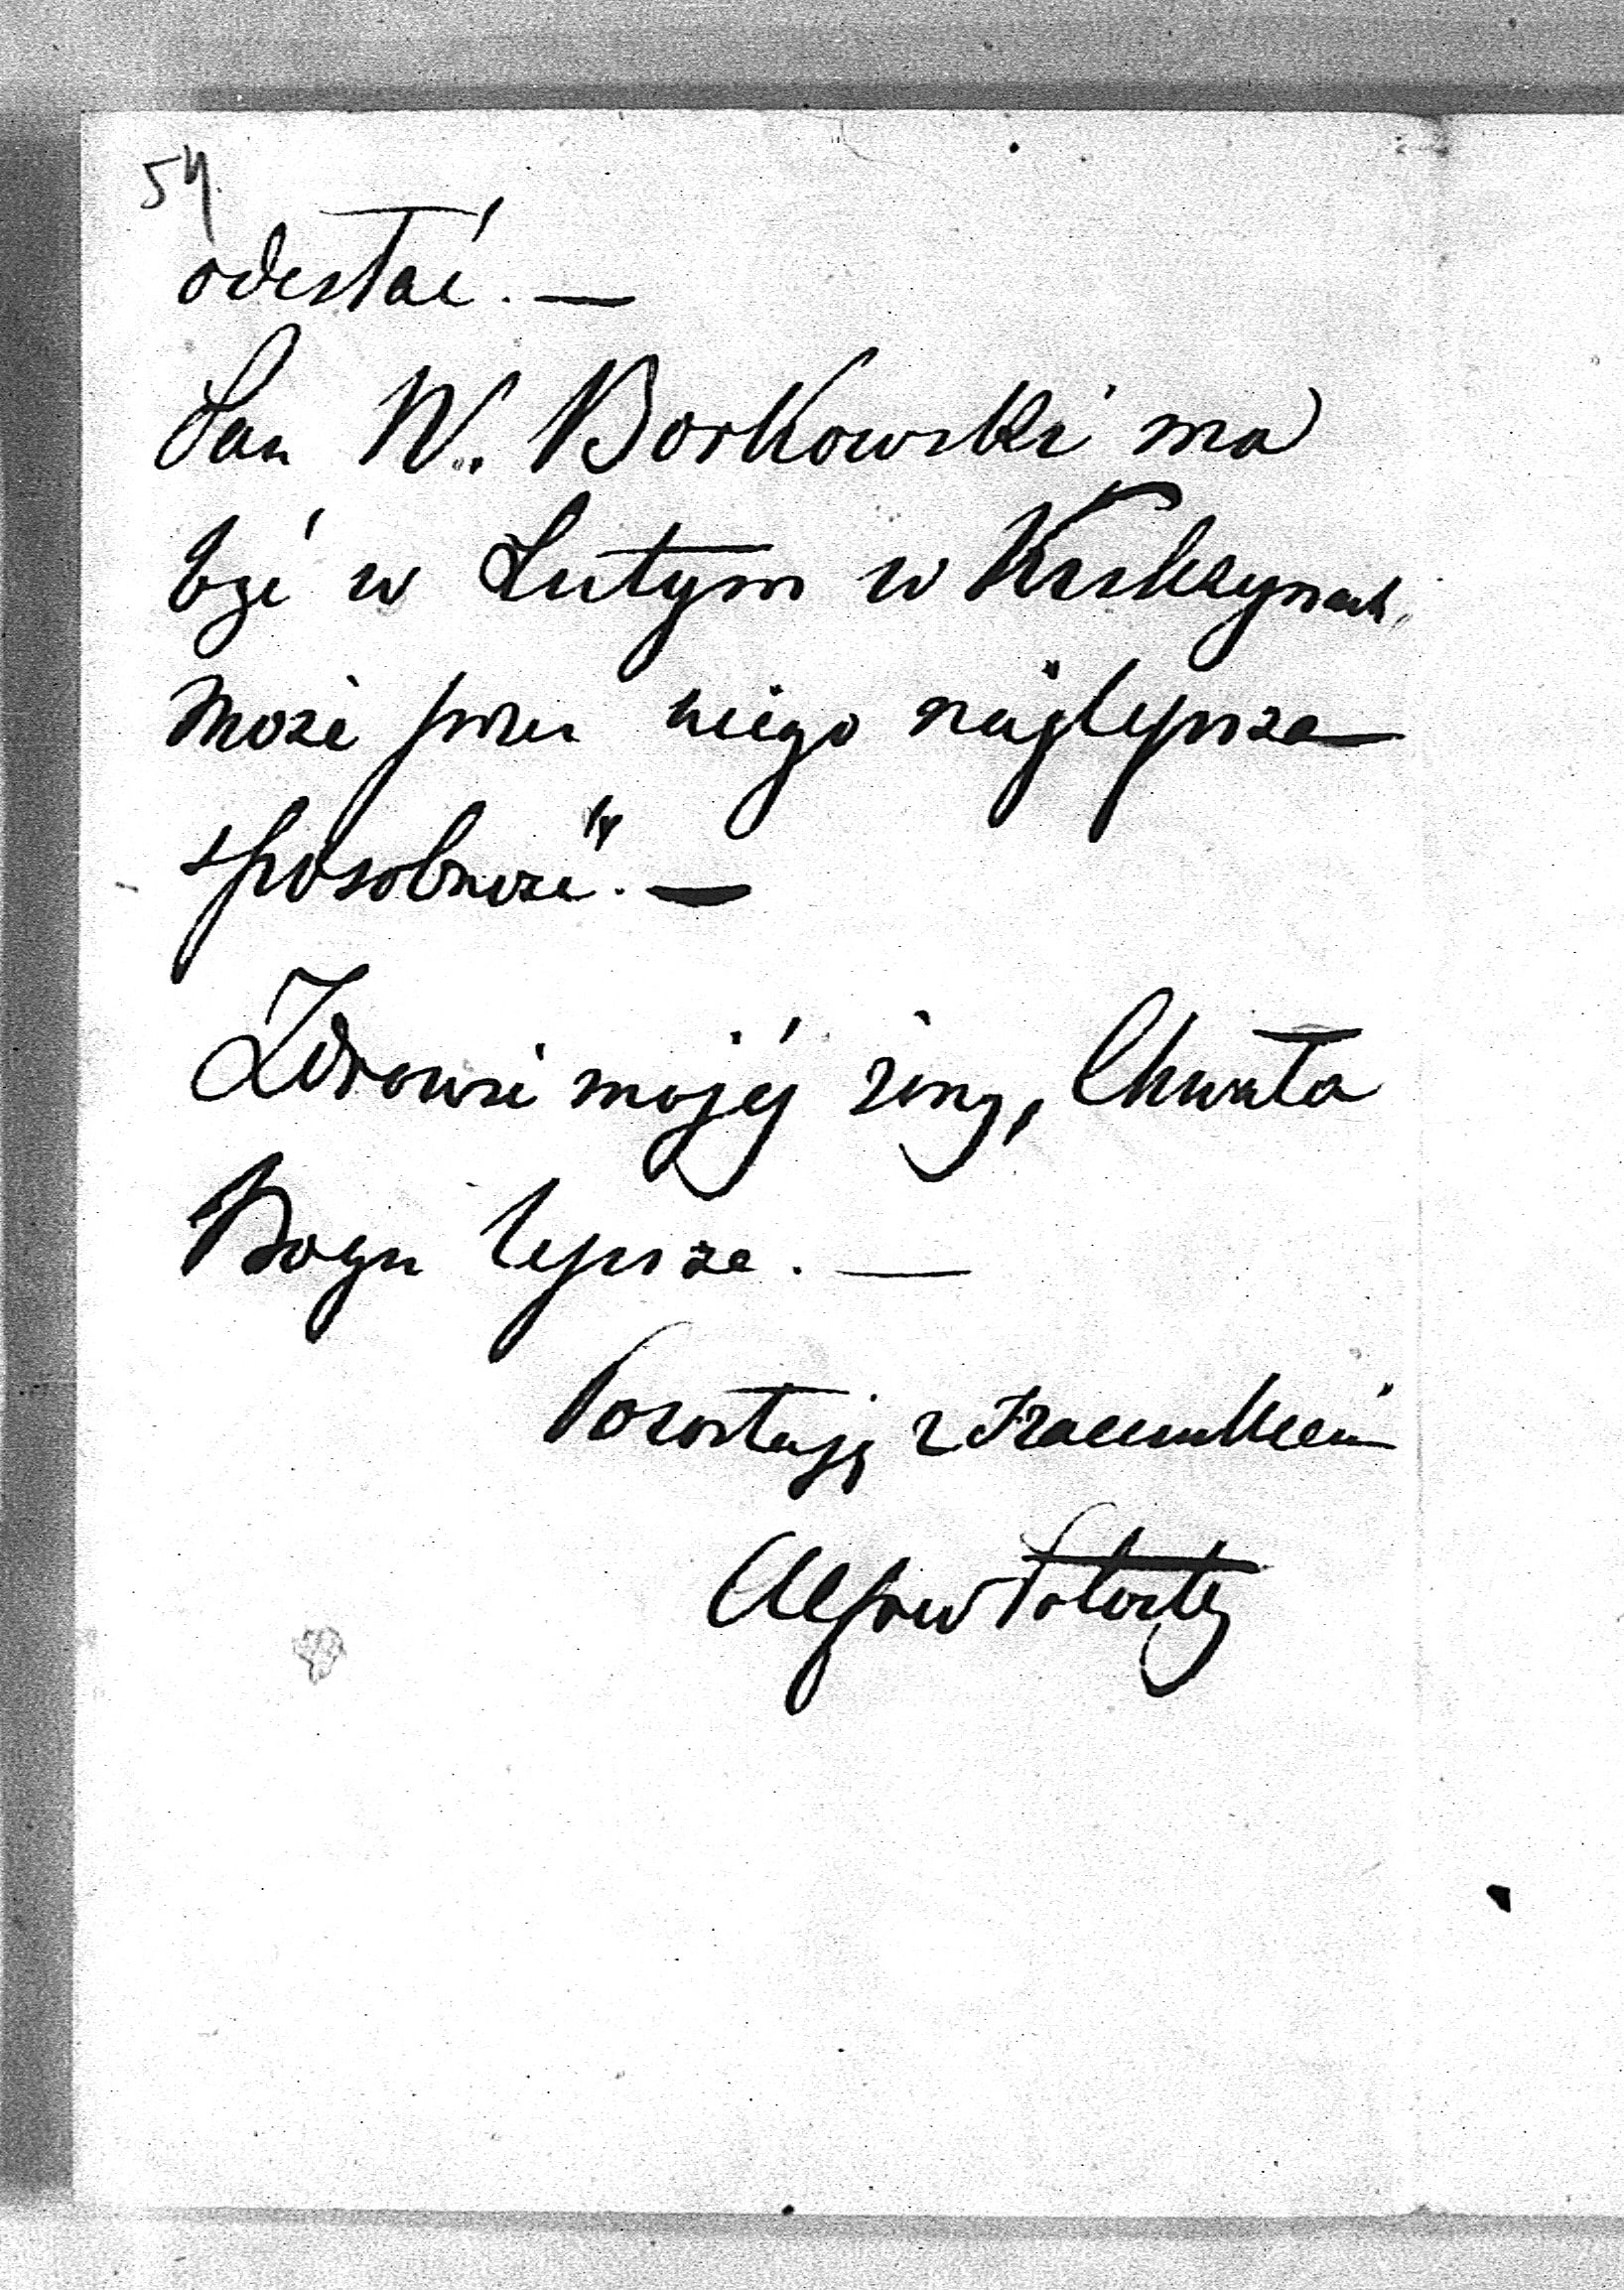 54.
odesłać. —
Pan W. Borkowski ma
być w Lutym w
może przez niego najlepsza
sposobność. —
Zdrowie mojéj żony, Chwała
Bogu lepsze. —
Pozostaję z szacunkiem
Alfred Potocki